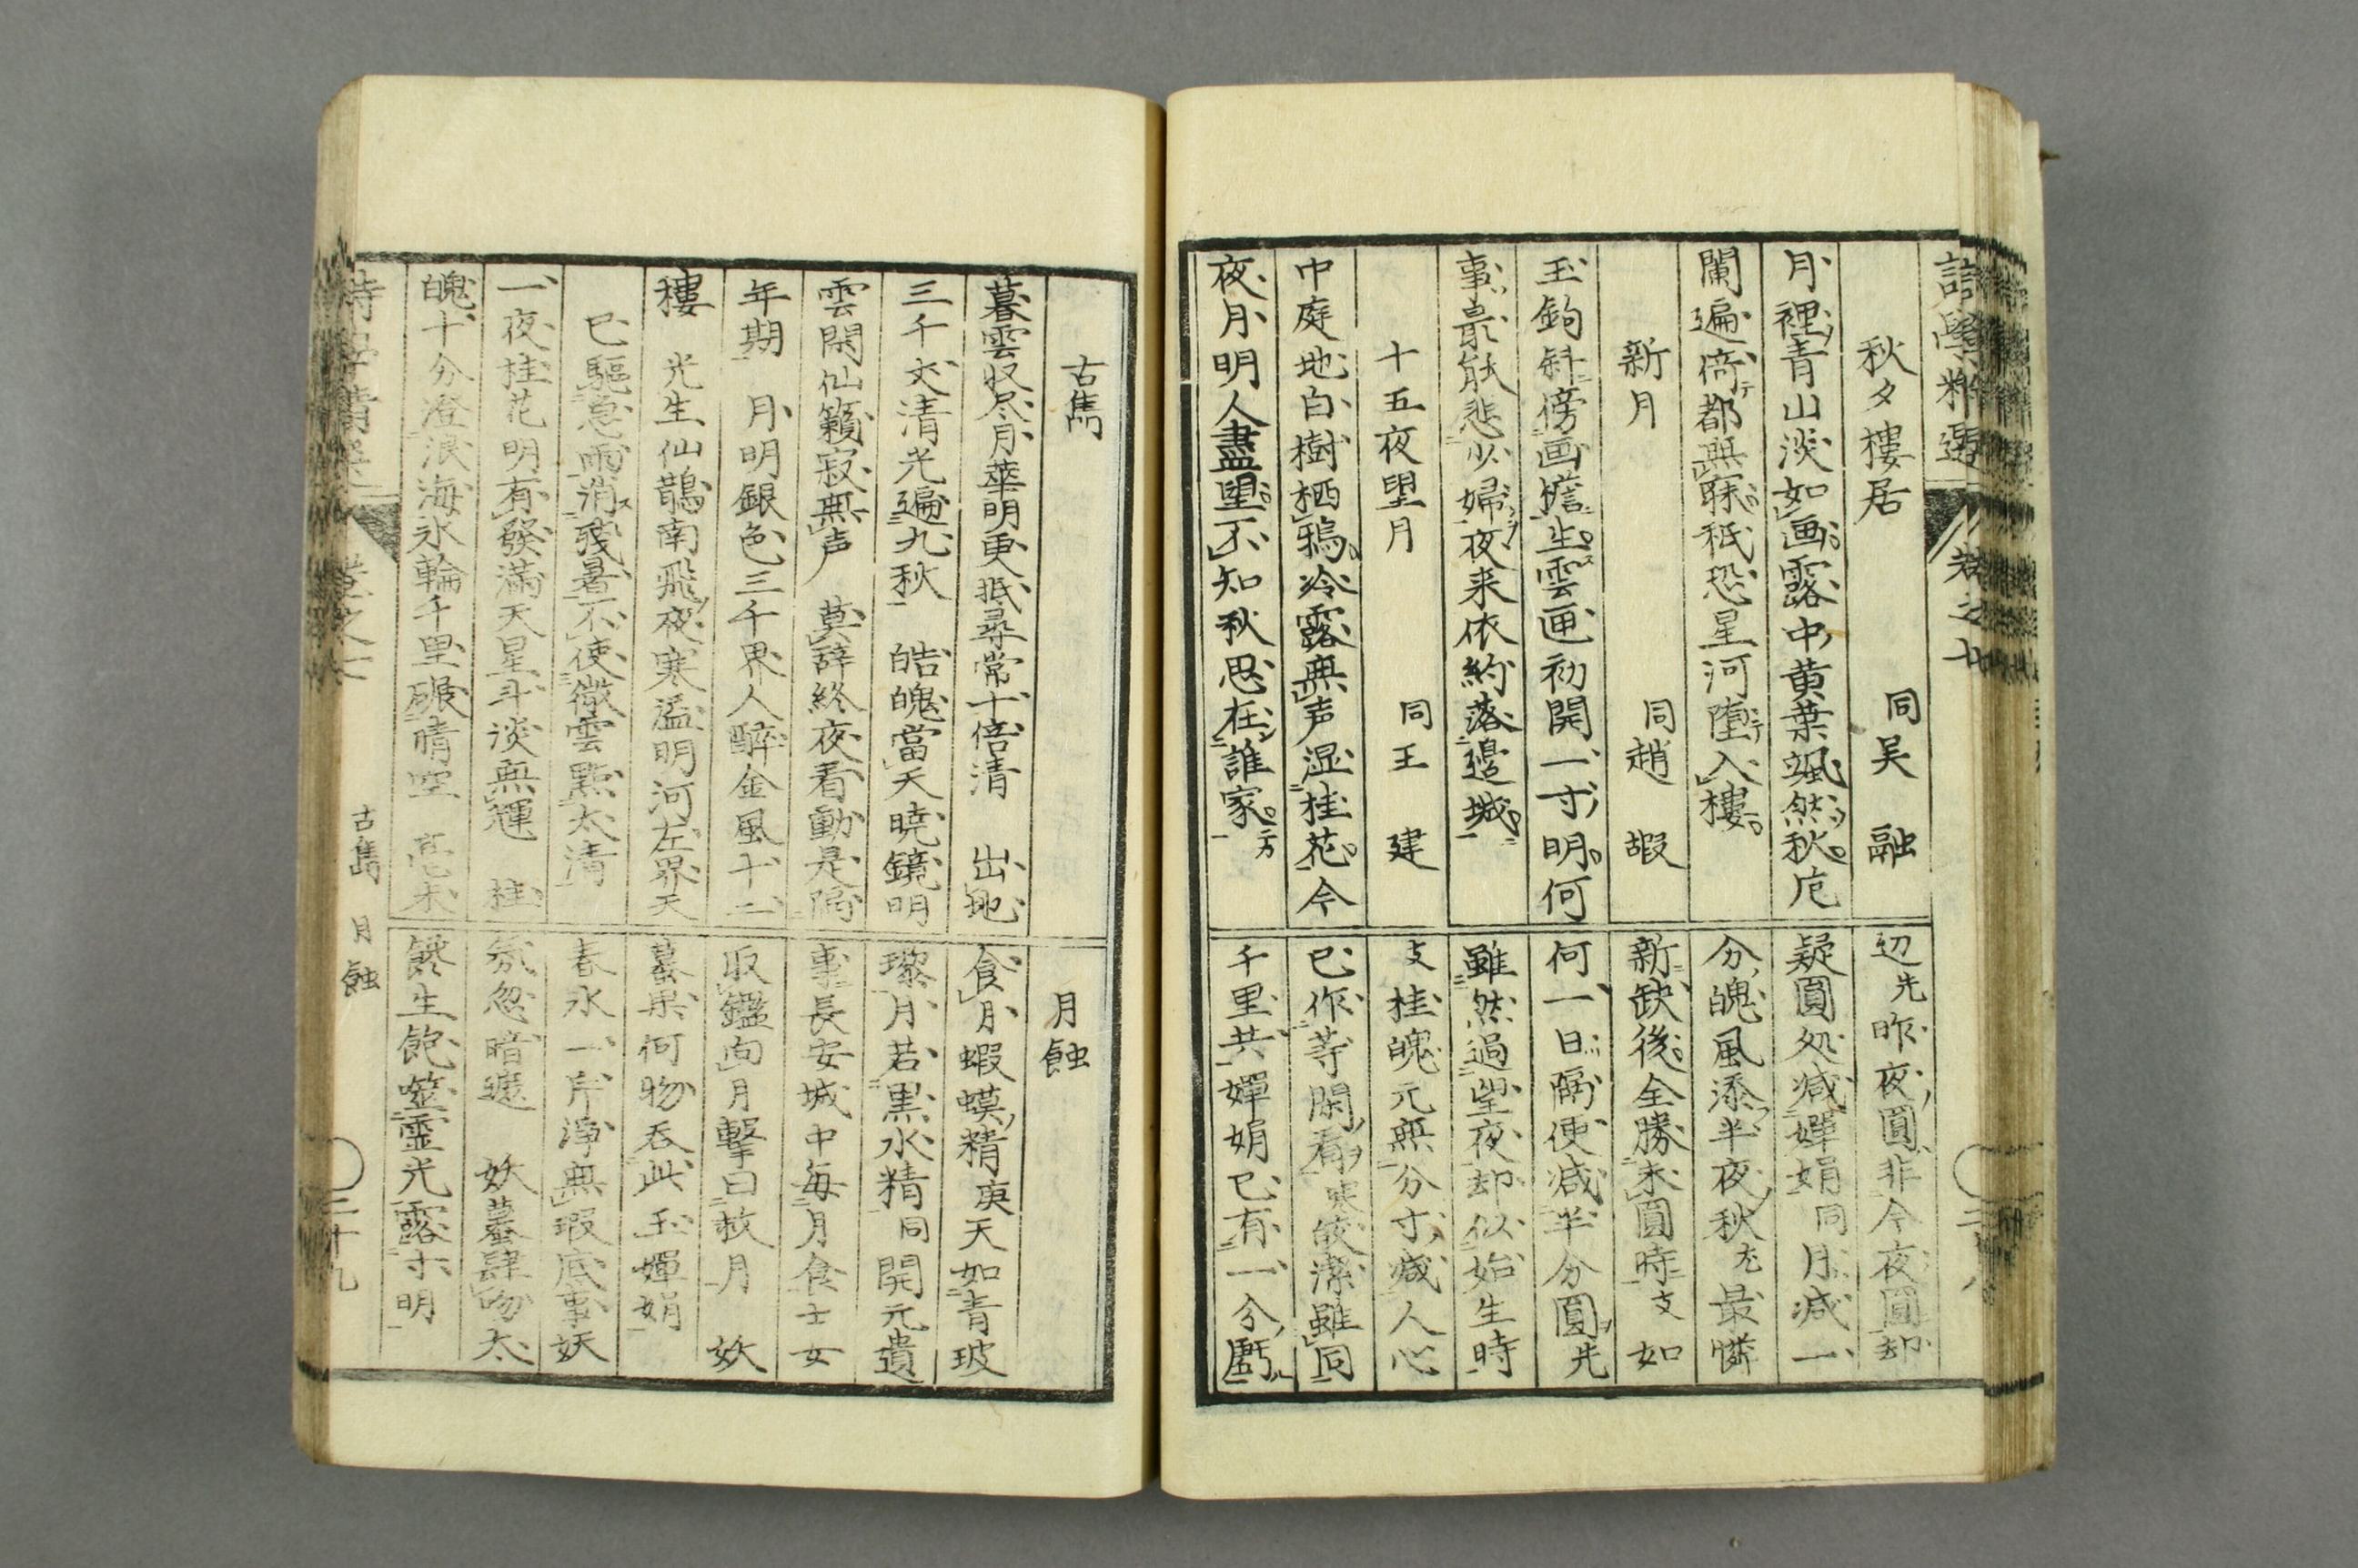 詩學精選 卷之七
秋夕樓居 同吴 融
月裡青山淡如画露中黄葉颯然秋危
闌遍倚都無寐祇恐星河墮入樓
新月 同趙 嘏
玉鉤斜傍画簷生雲匣初開一寸明何
事最能悲少婦夜来依約落邊城
十五夜望月 同王 建
中庭地白樹栖鴉冷露無声湿桂花今
夜月明人盡望不知秋思在誰家
辺先昨夜圓非今夜圓却
疑圓処減嬋娟同月減一
分魄風添半夜秋尤最憐
新缺後全勝未圓時支如
何一日隔便減半分圓先
雖然過望夜却似始生時
支桂魄元無分寸減人心
已作等閑看寒皎潔雖同
千里共嬋娟已有一分虧
古雋
暮雲収尽月華明更抵尋常十倍清 出地
三千丈清光遍九秋 皓魄當天曉鏡明
雲閑仙籟寂無声 莫辞終夜看動是隔
年期 月明銀色三千界人醉金風十二
樓 光生仙鵲南飛夜寒溢明河左界天
已驅急雨消殘暑不使微雲點太清
一夜桂花明有發滿天星斗淡無輝 桂
魄十分澄浪海氷輪千里碾晴空 亳末
月蝕
食月蝦蟆精庚天如青玻
瓈月若黒水精同開元遺
事長安城中毎月食士女
取鑑向月撃曰救月 妖
蟇果何物呑此玉嬋娟
春氷一片淨無瑕底事妖
氛忽暗遮 妖蟇肆吻太
饞生飽噬霊光露寸明
詩學精選 卷之七 古雋 月蝕 二十九